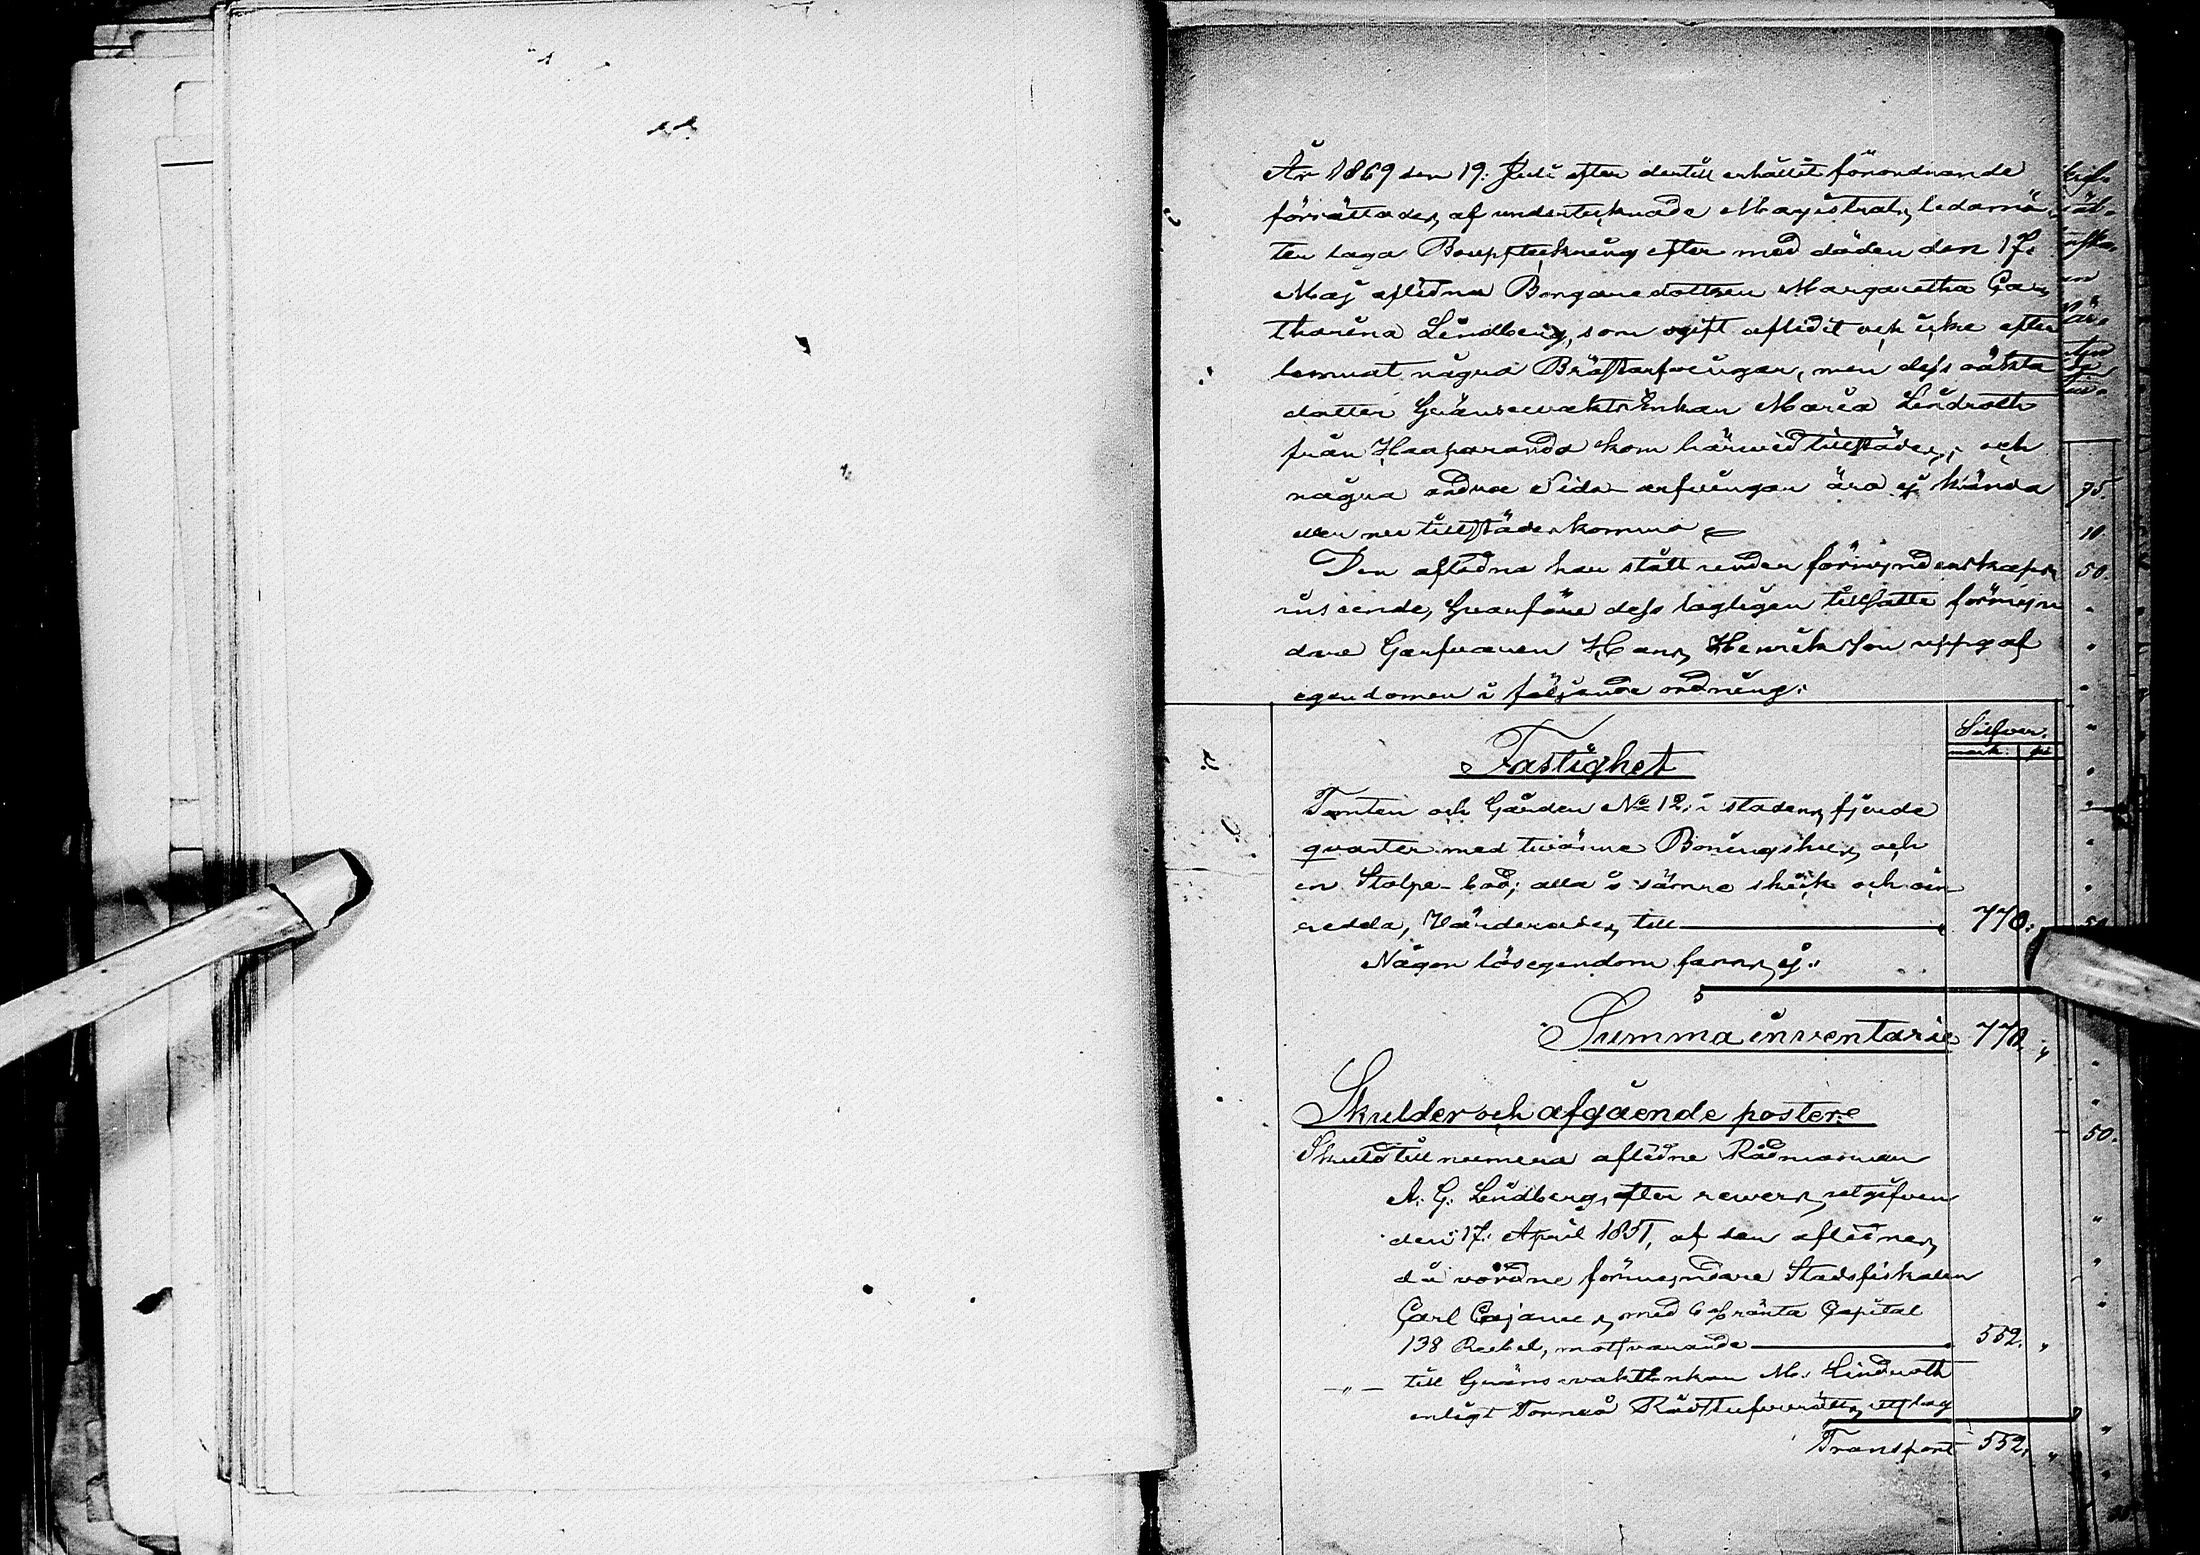 År 1869 den 19. Juli efter dertill erhållit förordnande
förrättades af undertecknade Magistrats ledamö-
ter laga Bouppteckning efter med döden den 17.
Maj aflidna Borgaredottren Margaretha Ca-
tharina Lindberg, som ogift aflidit och icke efter
lemnat några Bröstarfvingar, men dess
dotter Gränsevakts Enkan Maria Lindroth
från Haaparanda kom härvid tillstädes; och
några andra Sido-arfvingar äro ej kända
eller nu tillstädeskomna
Den aflidna har stått under förmynderskaps
inseende, hvarföre dess lagligen tillsatte förmyn
dare Garfvaren Hans Henriksson uppgaf
egendomen i följande ordning:
Silfver.
mark. pi
Fastighet
Tomten och Gården No 12. i stadens fjerde
quarter med tvänne Boningshus och
en Stolpe-bod; alla i sämre skick och oin
redda, Värderades till 770. „
Någon lösegendom fanns ej.
Summa inventarie 770. „
Skulder och afgående poster:
Skuld till numera aflidne Rådmannen
A. G. Lindberg, efter revers utgifven
den 17. April 1851, af den aflidnes
då vordne förmyndare Stadsfiskalen
Carl Cajanus, med 6 % ränta Capital
138 Rubel, motsvarande 552. „
— „ — till Gränsevakts Enkan M. Lindroth
enligt Torneå Rådstufvurätts utslag
Transport 552. „
75.
10.
50.
50.
50.